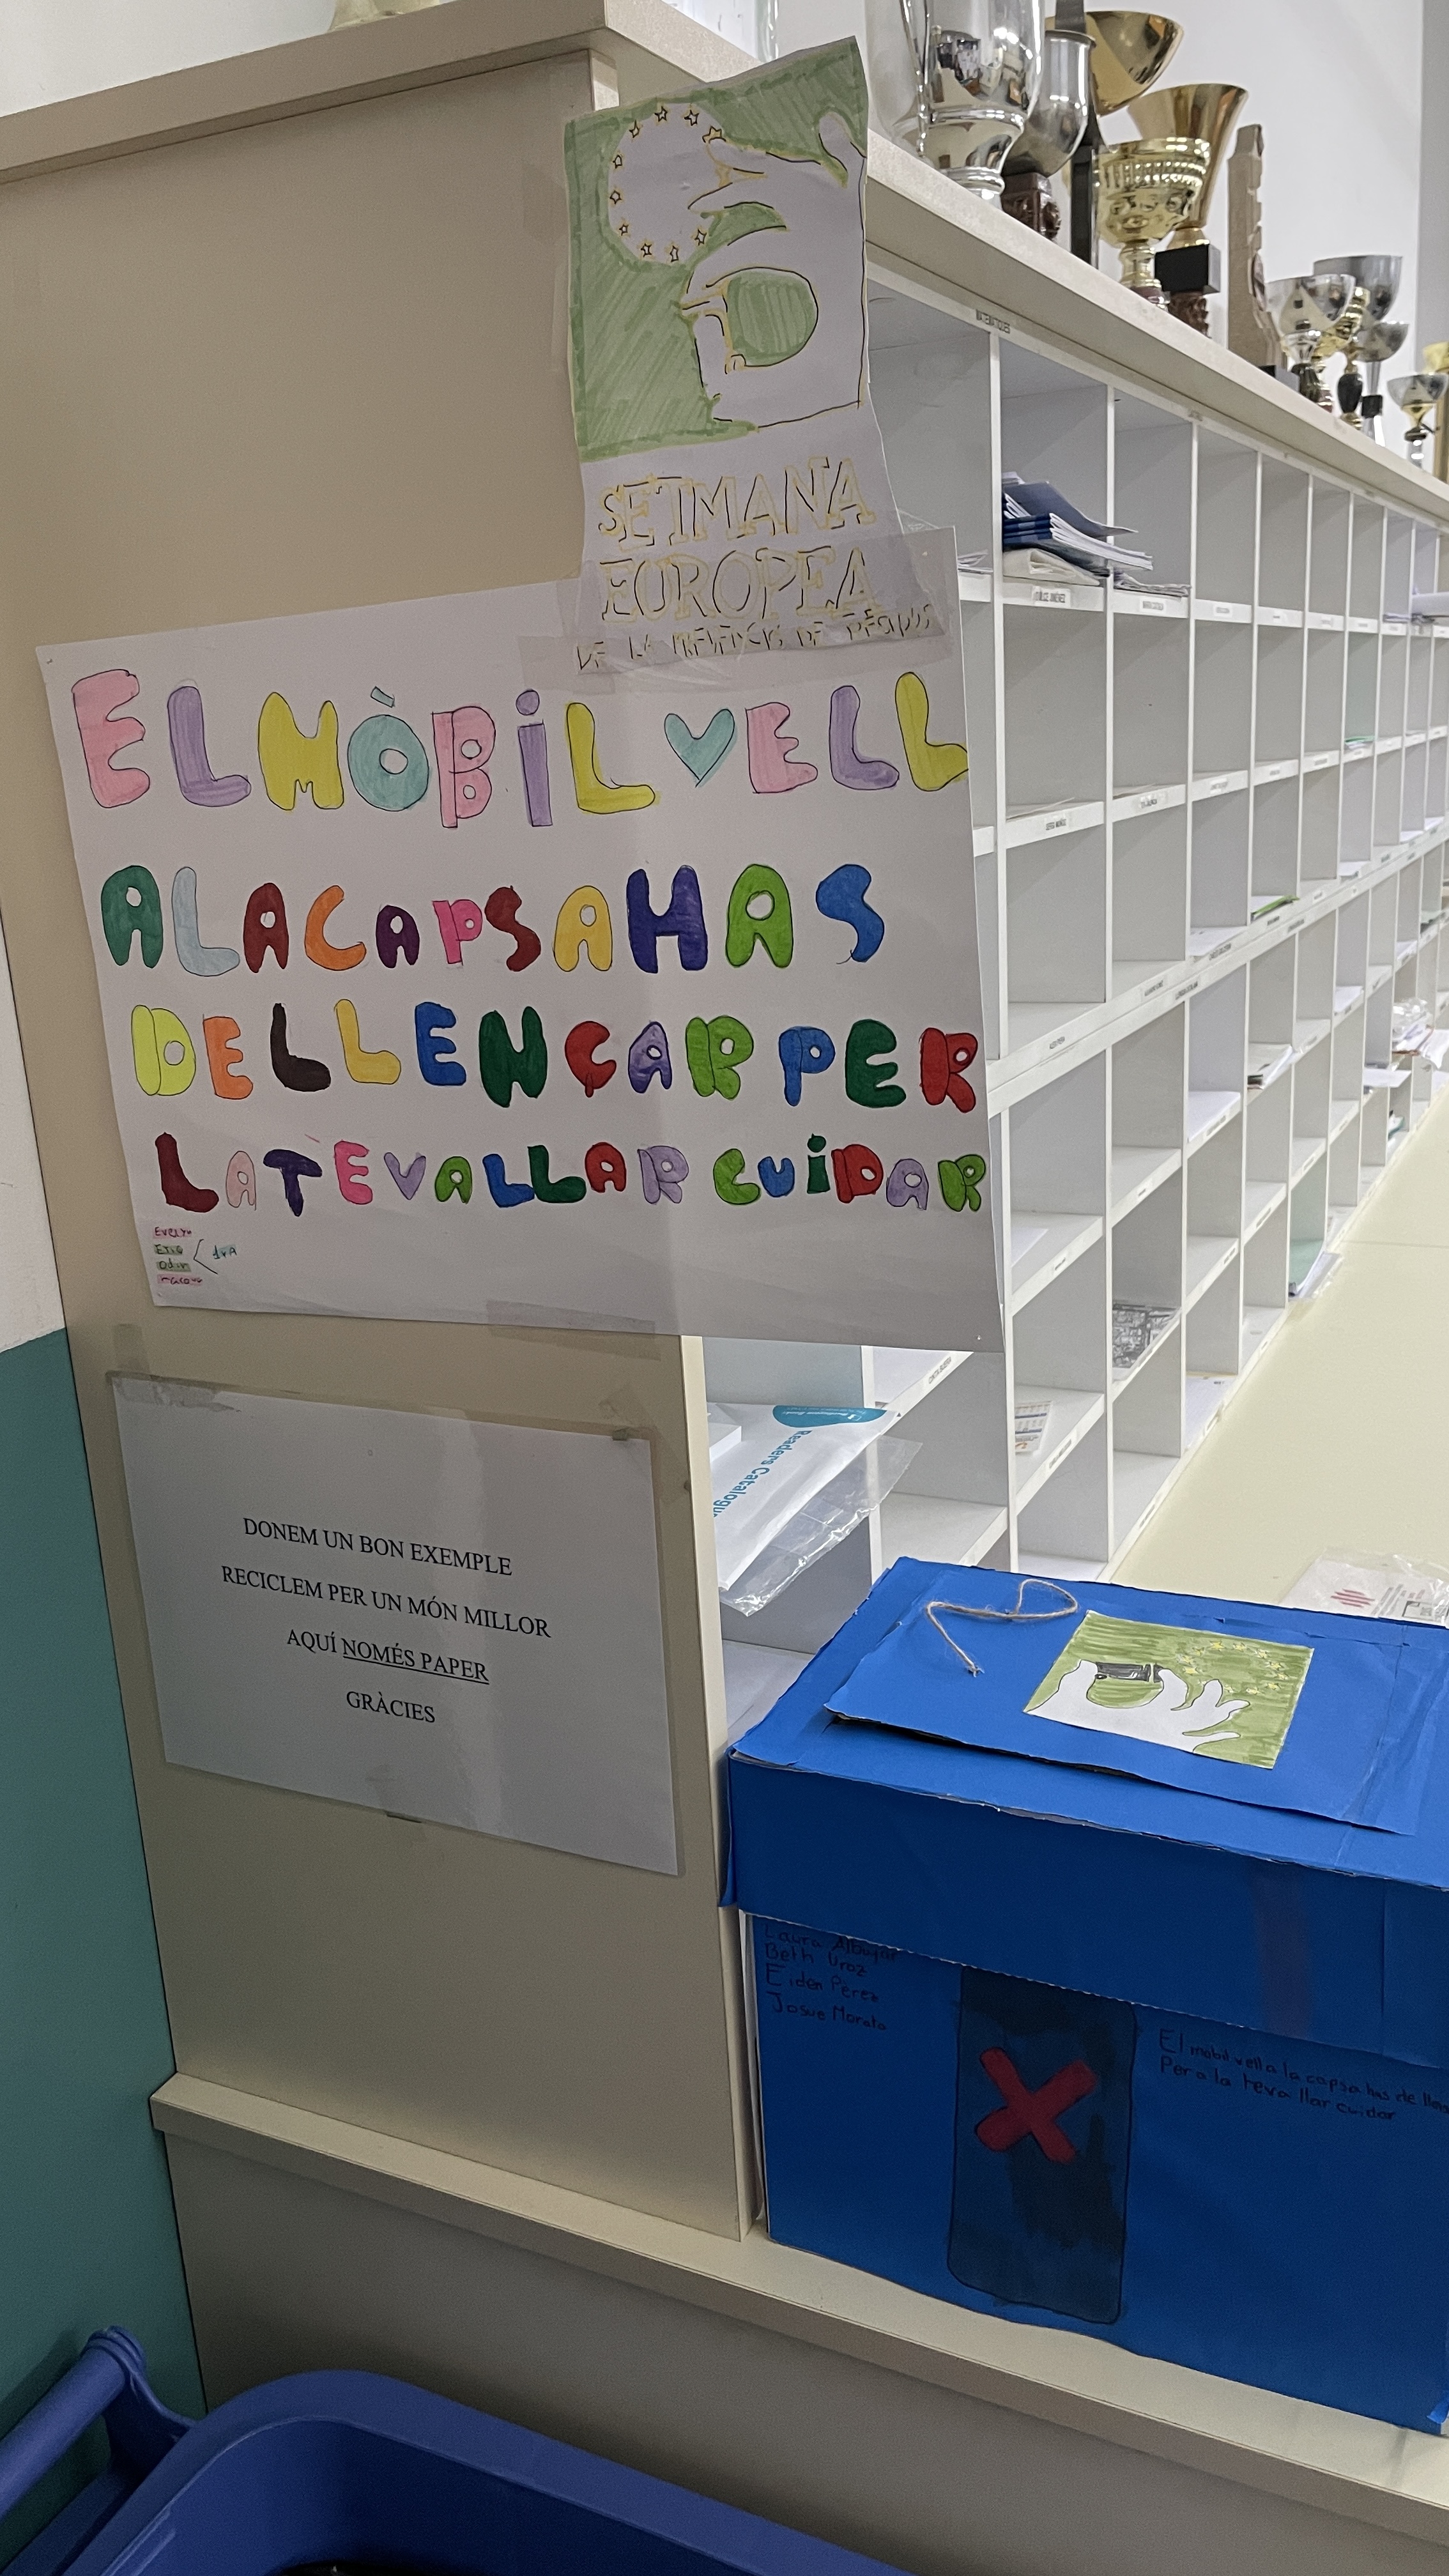 SETMANA
EUROPEA
DE LA PREVENCIÓ DE RESIDUS
EL MÒBIL VELL
A LA CAPSA HAS
DE LLENÇAR PER
LA TEVA LLAR CUIDAR
Evelyn
Eric
Odin
1r A
DONEM UN BON EXEMPLE
RECICLEM PER UN MÓN MILLOR
AQUÍ NOMÉS PAPER
GRÀCIES
MATEMÀTIQUES
Readers Catalogue
Laura
Beth Uroz
Eiden Pèrez
Josue Morato
El mobil vell a la capsa has de
Per a la teva llar cuidar